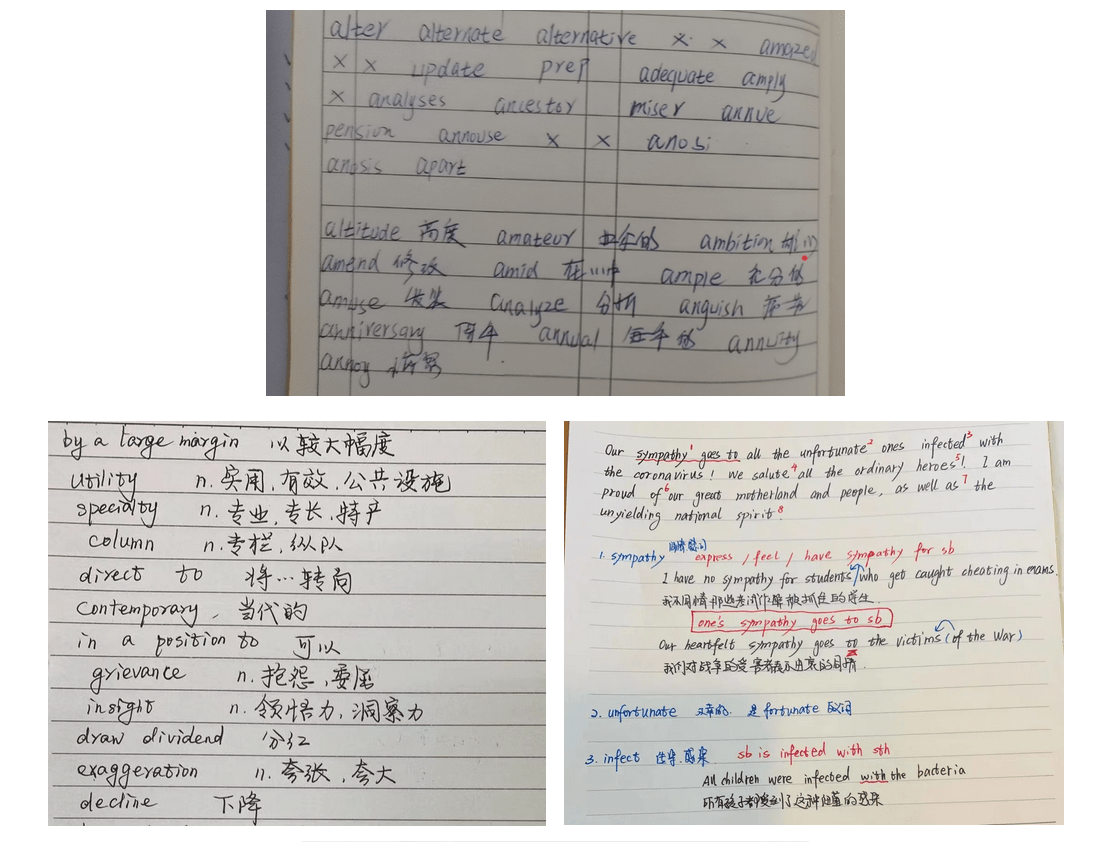 alter alternate alternative × × amazed
× × update prep adequate amply
× analyses ancestor miser annue
pension annouse × × anosi
anosis apart
altitude 高度 amateur ambition
amend 修改 amid 在…中 ample 充分的
amuse analyze 分析 anguish
anniversary 周年 annual 每年的 annuity
annoy
by a large margin 以较大幅度
utility n. 实用,有效,公共设施
specialty n. 专业,专长,特产
column n. 专栏,纵队
direct to 将…转向
contemporary, 当代的
in a position to 可以
grievance n. 抱怨,委屈
insight n. 领悟力,洞察力
draw dividend 分红
exaggeration n. 夸张,夸大
decline 下降
Our sympathy¹ goes to all the unfortunate² ones infected³ with
the coronavirus! We salute⁴ all the ordinary heroes⁵! I am
proud of⁶ our great motherland and people, as well as⁷ the
unyielding national spirit⁸
1. sympathy express / feel / have sympathy for sb
I have no sympathy for students who get caught cheating in exams.
我不同情那些考试作弊被抓住的学生.
one's sympathy goes to sb
Our heartfelt sympathy goes to the victims (of the War)
我们对战争的受害者表示由衷的同情.
2. unfortunate 不幸的. 是fortunate反词
3. infect 传染.感染 sb is infected with sth
All children were infected with the bacteria
所有孩子都受到了这种细菌的感染